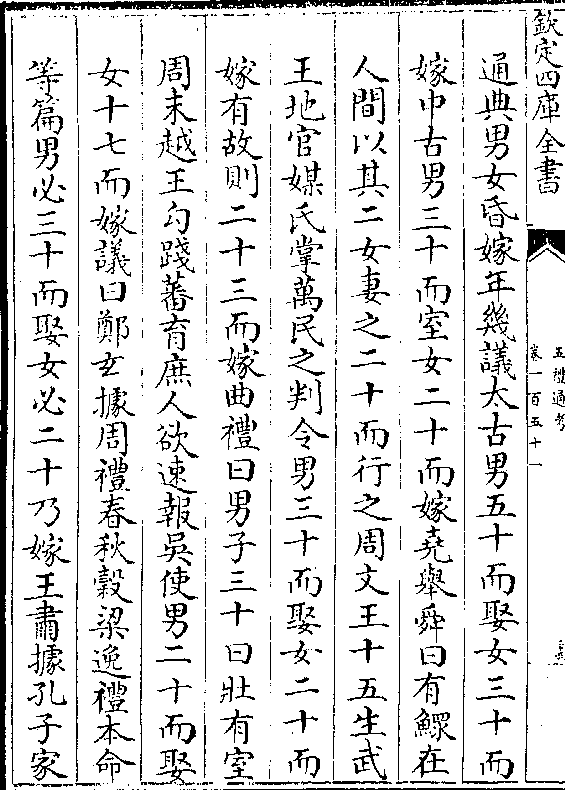 欽定四庫全書
五禮通考
卷一百五十一
通典男女昏嫁年幾議太古男五十而娶女三十而
嫁中古男三十而室女二十而嫁堯舉舜曰有鰥在
人間以其二女妻之二十而行之周文王十五生武
王地官媒氏掌萬民之判令男三十而娶女二十而
嫁有故則二十三而嫁曲禮曰男子三十曰壯有室
周末越王勾踐蕃育庶人欲速報吳使男二十而娶
女十七而嫁議曰鄭玄據周禮春秋穀梁逸禮本命
等篇男必三十而娶女必二十乃嫁王肅據孔子家